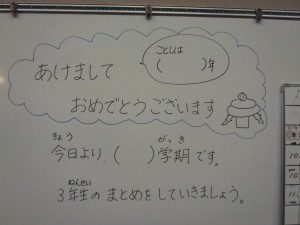 ことしは
(　　　)年
あけまして
おめでとうございます
きょう　がっき
今日より、(　　)学期です。
ねんせい
3年生のまとめをしていきましょう。
10
11